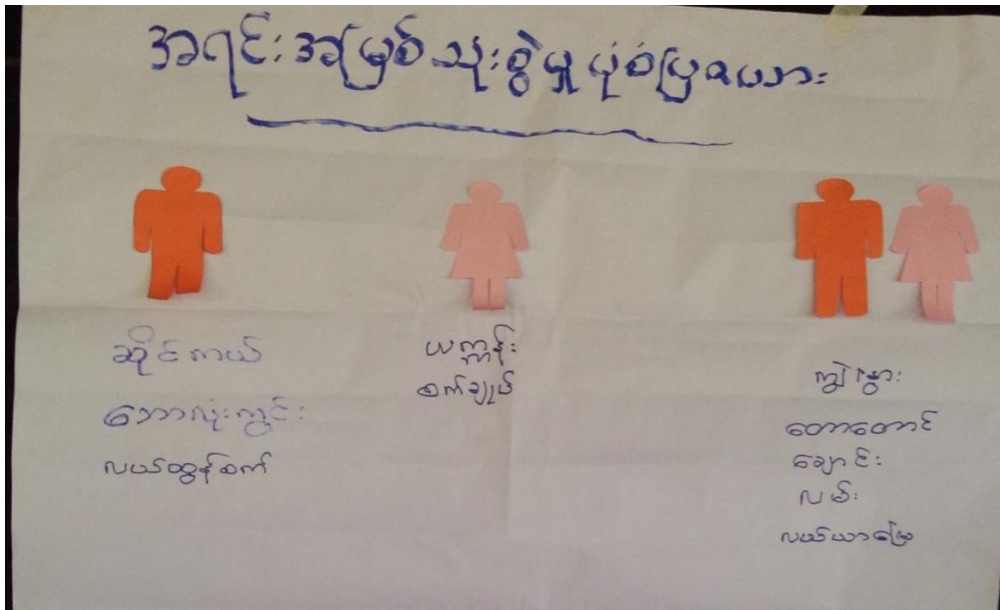 အရင်းအမြစ်သုံးစွဲမှုပုံစံပြဇယား
ဆိုင်ကယ်
ဘောလုံးကွင်း
လယ်ထွန်စက်
ယက္ကန်း
စက်ချုပ်
ကျွဲ၊နွား
တောတောင်
ချောင်း
လမ်း
လယ်ယာမြေ